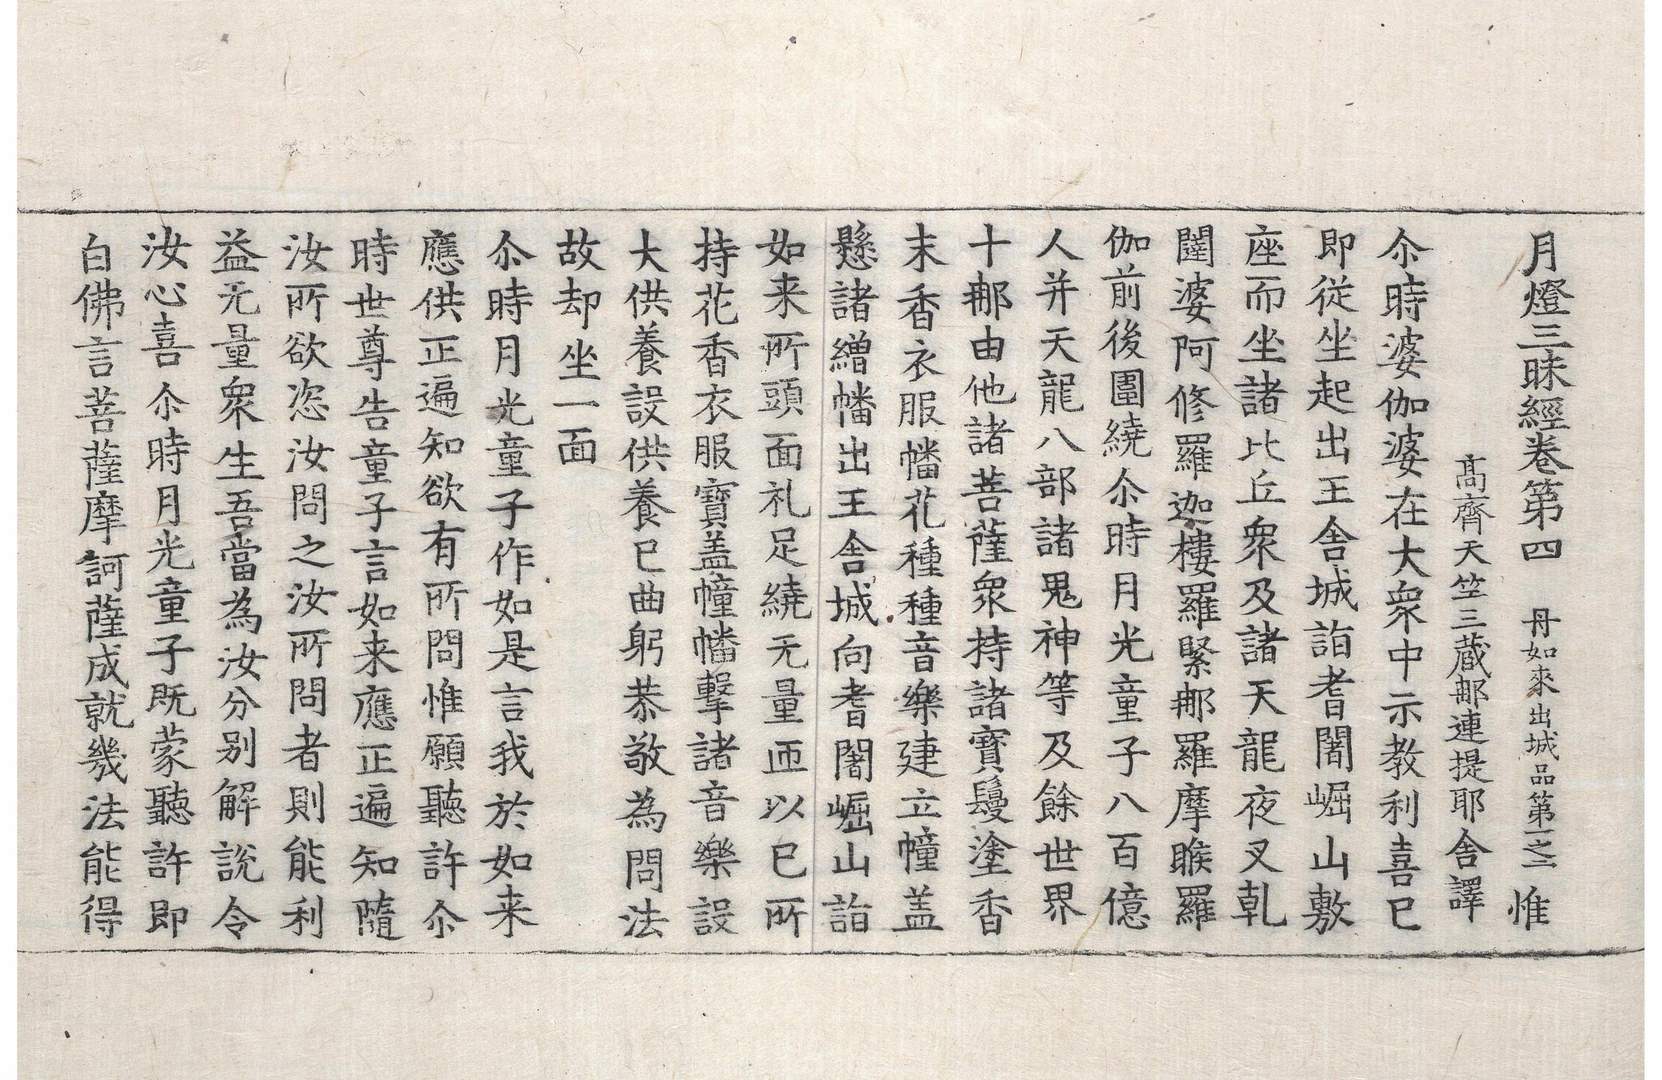 月燈三昧經卷第四 丹如來出城品第一之一 惟
高齊天竺三藏郍連提耶舍譯
尒時婆伽婆在大衆中示教利喜已
即從坐起出王舍城詣耆闍崛山敷
座而坐諸比丘衆及諸天龍夜叉乹
闥婆阿修羅迦樓羅緊郍羅摩睺羅
伽前後圍繞尒時月光童子八百億
人并天龍八部諸鬼神等及餘世界
十郍由他諸菩薩衆持諸寶鬘塗香
末香衣服幡花種種音樂建立幢盖
懸諸繒幡出王舍城向耆闍崛山詣
如来所頭面礼足繞无量匝以已所
持花香衣服寶盖幢幡擊諸音樂設
大供養設供養已曲躬恭敬為問法
故却坐一面
尒時月光童子作如是言我於如来
應供正遍知欲有所問惟願聽許尒
時世尊告童子言如来應正遍知隨
汝所欲恣汝問之汝所問者則能利
益无量衆生吾當為汝分别解說令
汝心喜尒時月光童子既蒙聽許即
白佛言菩薩摩訶薩成就幾法能得